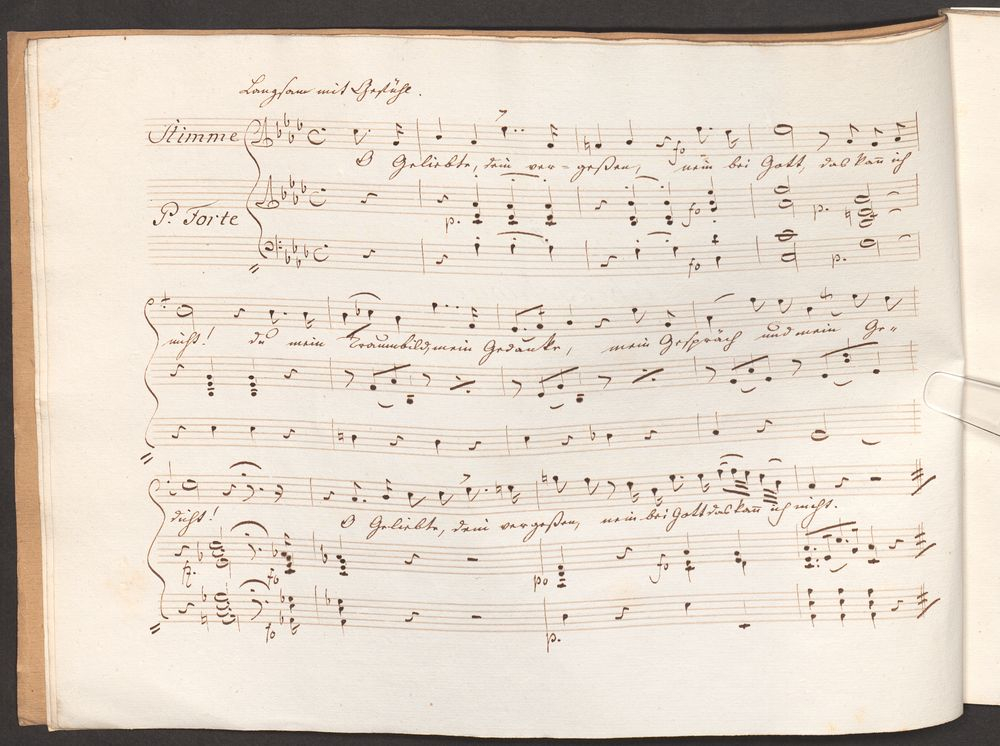 Langsam mit Gefühl.
Stimme
O Geliebte, dein ver=geßen, nein bei Gott, das kañ ich
P. Forte
p. fo p.
fo p.
nicht! du mein Traumbild, mein Gedanke, mein Gespräch und mein Ge=
dicht! O Geliebte, dein vergeßen, nein bei Gott das kañ ich nicht.
fo po fo
fo p.